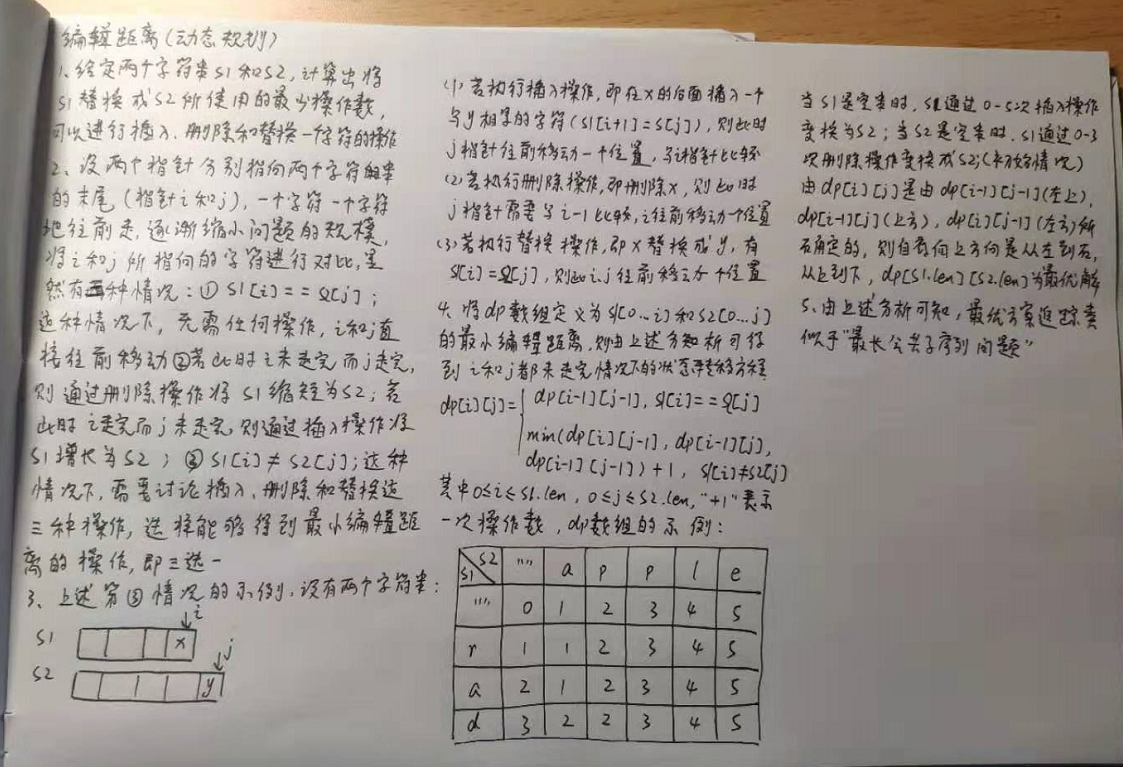 编辑距离(动态规划)
1、给定两个字符串S1和S2,计算出将
S1替换成S2所使用的最少操作数,
可以进行插入、删除和替换一个字符的操作
2、设两个指针分别指向两个字符串
的末尾(指针i和j),一个字符一个字符
地往前走,逐渐缩小问题的规模,
将i和j所指向的字符进行对比,显
然有三种情况:① S1[i]==S2[j];
这种情况下,无需任何操作,i和j直
接往前移动②若此时i未走完而j走完,
则通过删除操作将S1缩短为S2;若
此时i走完而j未走完,则通过插入操作将
S1增长为S2;③S1[i]≠S2[j];这种
情况下,需要讨论插入、删除和替换这
三种操作,选择能够得到最小编辑距
离的操作,即三选一
3、上述第③情况的示例,设有两个字符串:
i
S1 x
j
S2 y
(1)若执行插入操作,即在x的后面插入一个
与y相等的字符(S1[i+1]=S[j]),则此时
j指针往前移动一个位置,与i指针比较
(2)若执行删除操作,即删除x,则此时
j指针需要与i-1比较,i往前移动一个位置
(3)若执行替换操作,即x替换成y,有
S1[i]=S2[j],则此i,j往前移动一个位置
4、将dp数组定义为S1[0…i]和S2[0…j]
的最小编辑距离,则由上述分析可得
到i和j都未走完情况下的状态转移方程
dp[i][j]={ dp[i-1][j-1], S1[i]==S2[j]
min(dp[i][j-1], dp[i-1][j],
dp[i-1][j-1])+1, S1[i]≠S2[j]
其中0≤i≤S1.len, 0≤j≤S2.len,"+1"表示
一次操作数,dp数组的示例:
S1 S2 "" a p p l e
"" 0 1 2 3 4 5
r 1 1 2 3 4 5
a 2 1 2 3 4 5
d 3 2 2 3 4 5
当S1是空串时,S1通过0-5次插入操作
变换为S2;当S2是空串时,S1通过0-3
次删除操作变换成S2;(初始情况)
由dp[i][j]是由dp[i-1][j-1](左上),
dp[i-1][j](上方),dp[i][j-1](左方)所
确定的,则自底向上方向是从左到右,
从上到下,dp[S1.len][S2.len]为最优解
5、由上述分析可知,最优方案追踪类
似于"最长公共子序列问题"